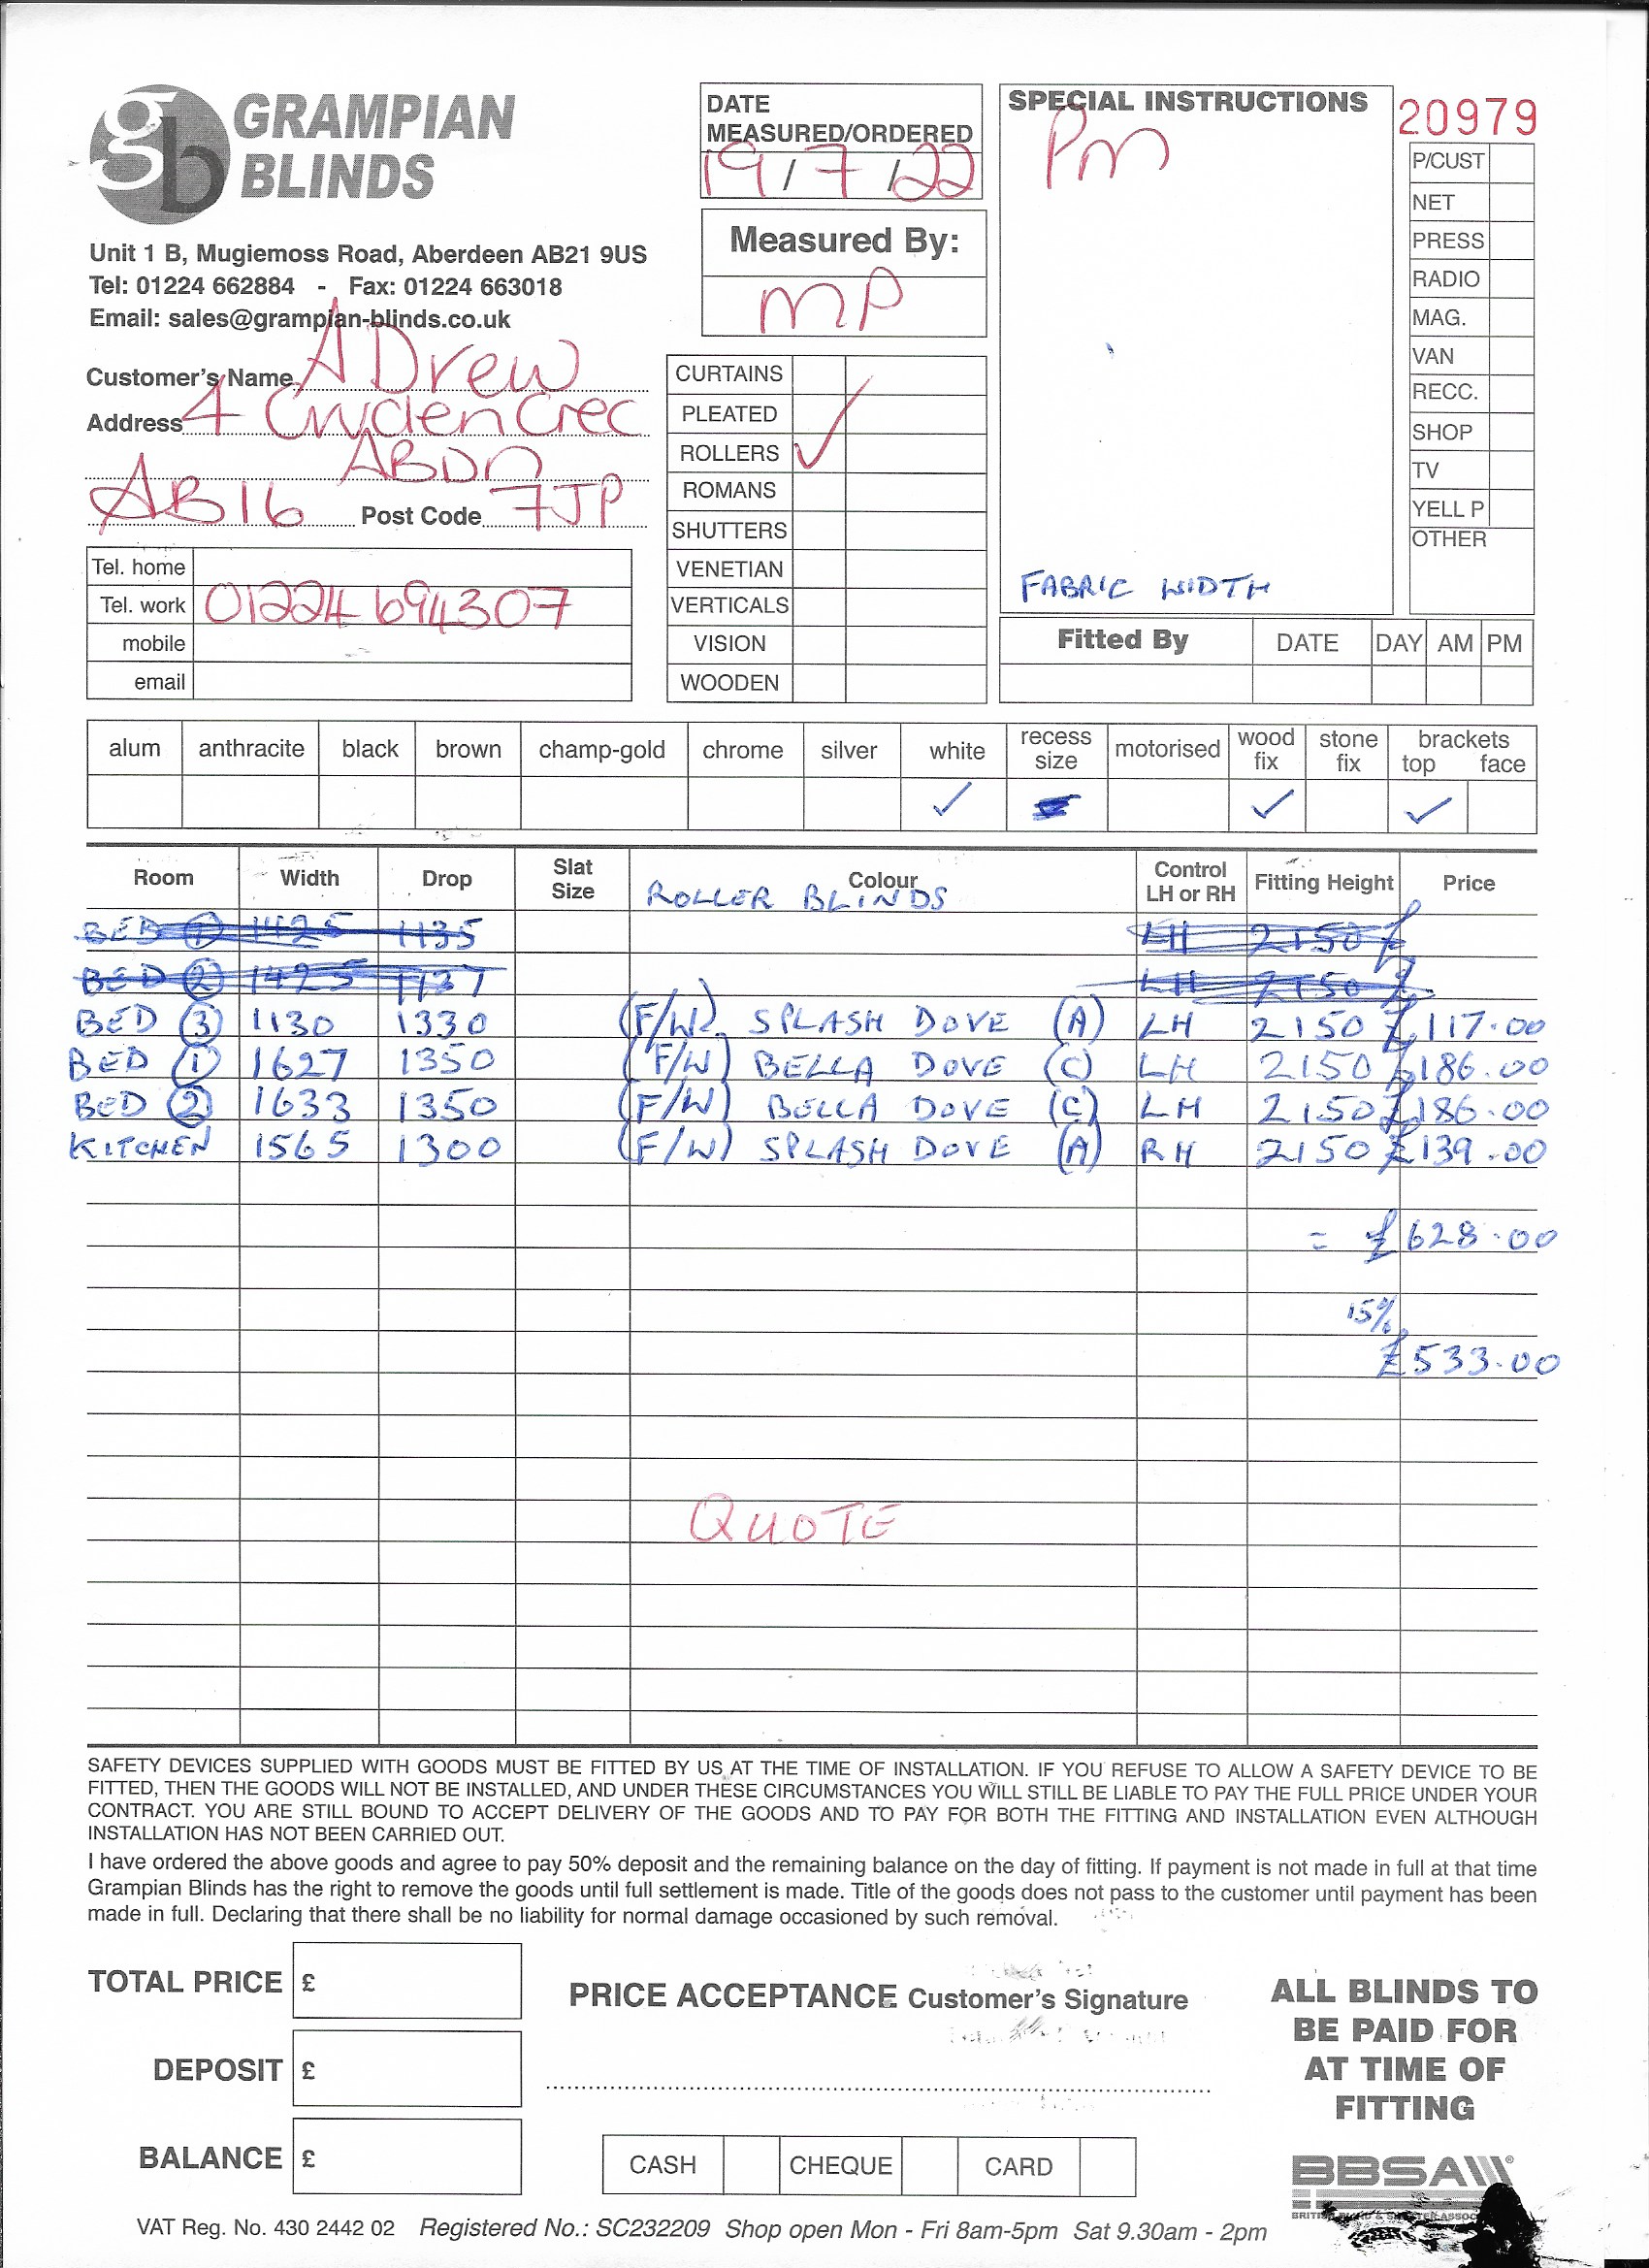 GRAMPIAN
BLINDS
Unit 1 B, Mugiemoss Road, Aberdeen AB21 9US
Tel: 01224 662884 - Fax: 01224 663018
Email: sales@grampian-blinds.co.uk
Customer's Name A Drew
Address 4 Cruden Cres
ABDN
AB16 Post Code 7JP
Tel. home
Tel. work 01224 694307
mobile
email
DATE
MEASURED/ORDERED
19/7/22
Measured By:
MP
CURTAINS
PLEATED
ROLLERS ✓
ROMANS
SHUTTERS
VENETIAN
VERTICALS
VISION
WOODEN
SPECIAL INSTRUCTIONS
Pm
FABRIC WIDTH
20979
P/CUST
NET
PRESS
RADIO
MAG.
VAN
RECC.
SHOP
TV
YELL P
OTHER
Fitted By DATE DAY AM PM
alum anthracite black brown champ-gold chrome silver white recess size motorised wood fix stone fix brackets top face
✓ ✓ ✓
Room Width Drop Slat Size Colour Control LH or RH Fitting Height Price
ROLLER BLINDS
BED 1 1425 1135 LH 2150 £
BED 2 1425 1137 LH 2150 £
BED 3 1130 1330 (F/W) SPLASH DOVE (A) LH 2150 £117.00
BED 1 1627 1350 (F/W) BELLA DOVE (C) LH 2150 £186.00
BED 2 1633 1350 (F/W) BELLA DOVE (C) LH 2150 £186.00
KITCHEN 1565 1300 (F/W) SPLASH DOVE (A) RH 2150 £139.00
= £628.00
15%
£533.00
QUOTE
SAFETY DEVICES SUPPLIED WITH GOODS MUST BE FITTED BY US AT THE TIME OF INSTALLATION. IF YOU REFUSE TO ALLOW A SAFETY DEVICE TO BE
FITTED, THEN THE GOODS WILL NOT BE INSTALLED, AND UNDER THESE CIRCUMSTANCES YOU WILL STILL BE LIABLE TO PAY THE FULL PRICE UNDER YOUR
CONTRACT. YOU ARE STILL BOUND TO ACCEPT DELIVERY OF THE GOODS AND TO PAY FOR BOTH THE FITTING AND INSTALLATION EVEN ALTHOUGH
INSTALLATION HAS NOT BEEN CARRIED OUT.
I have ordered the above goods and agree to pay 50% deposit and the remaining balance on the day of fitting. If payment is not made in full at that time
Grampian Blinds has the right to remove the goods until full settlement is made. Title of the goods does not pass to the customer until payment has been
made in full. Declaring that there shall be no liability for normal damage occasioned by such removal.
TOTAL PRICE £
DEPOSIT £
BALANCE £
PRICE ACCEPTANCE Customer's Signature
CASH CHEQUE CARD
ALL BLINDS TO
BE PAID FOR
AT TIME OF
FITTING
BBSA
VAT Reg. No. 430 2442 02 Registered No.: SC232209 Shop open Mon - Fri 8am-5pm Sat 9.30am - 2pm